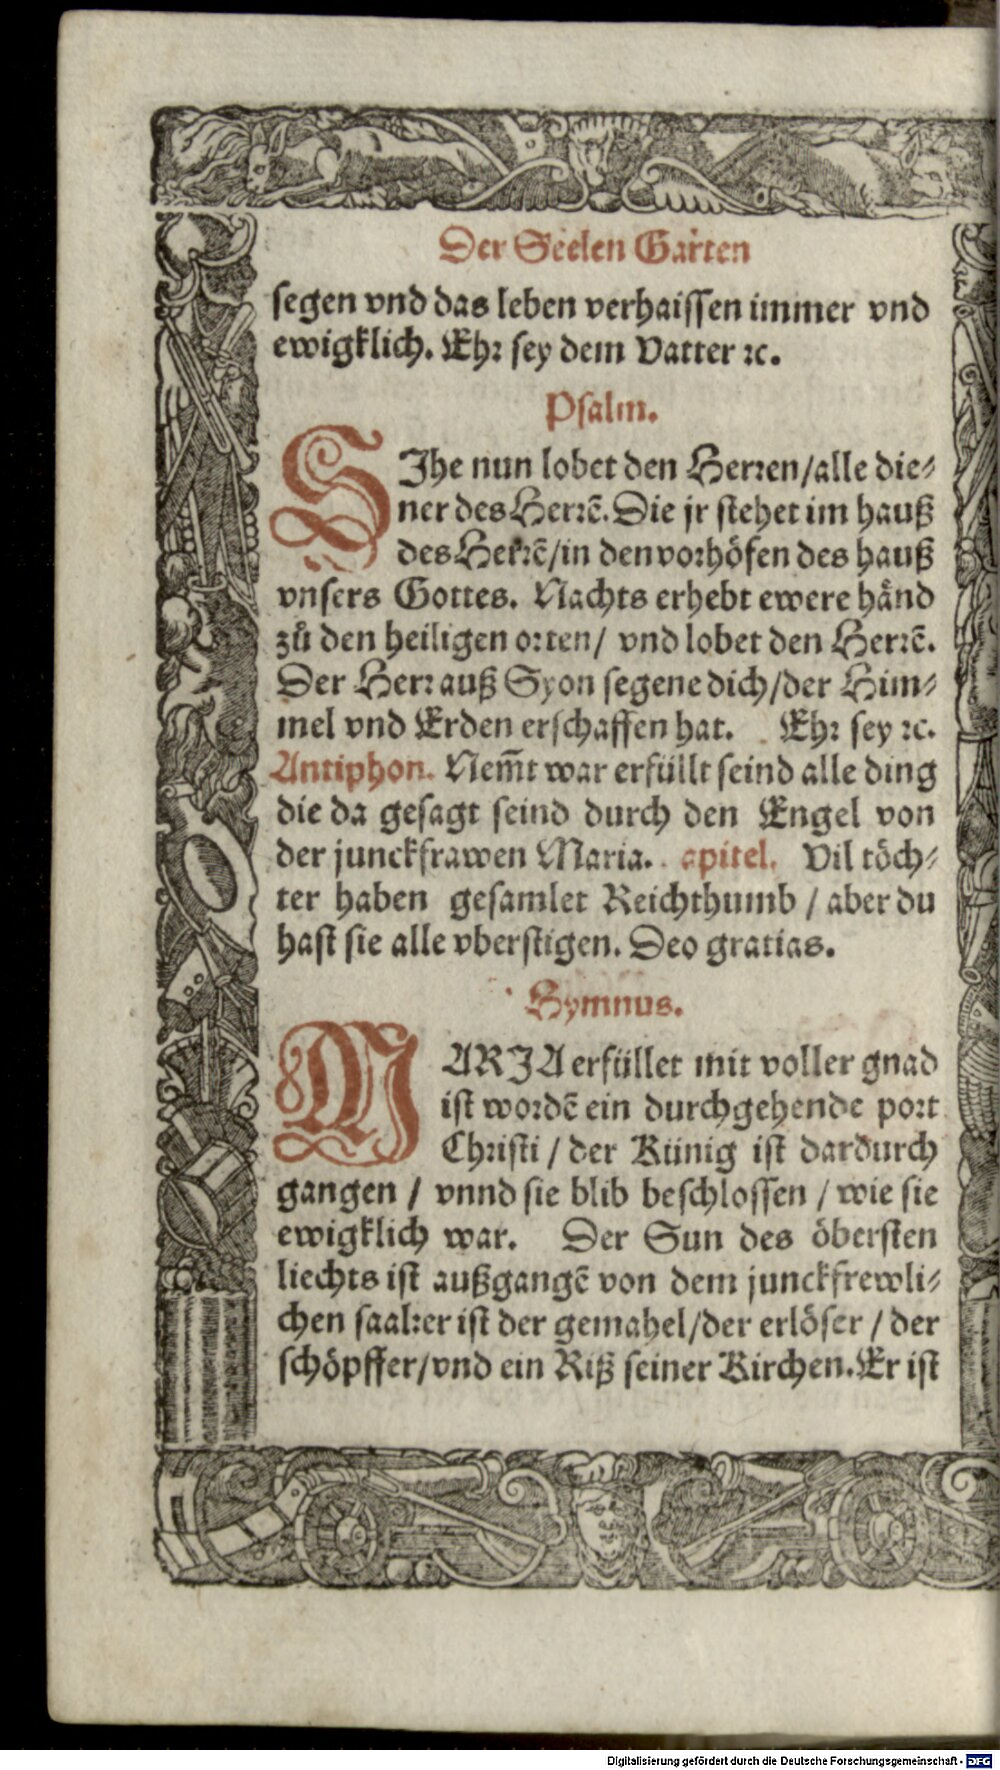 Der Seelen Garten
segen vnd das leben verhaissen immer vnd
ewigklich. Ehr sey dem Vatter ꝛc.
Psalm.
SIhe nun lobet den Herren/alle die⸗
ner des Herrẽ. Die jr stehet im hauß
des Herrẽ/in den vorhöfen des hauß
vnsers Gottes. Nachts erhebt ewere händ
zů den heiligen orten/ vnd lobet den Herrẽ.
Der Herr auß Syon segene dich/der Him⸗
mel vnd Erden erschaffen hat. Ehr sey ꝛc.
Antiphon. Nem̃t war erfüllt seind alle ding
die da gesagt seind durch den Engel von
der junckfrawen Maria. apitel. Vil töch⸗
ter haben gesamlet Reichthumb / aber du
hast sie alle vberstigen. Deo gratias.
Hymnus.
MARIA erfüllet mit voller gnad
ist wordẽ ein durchgehende port
Christi / der Künig ist dardurch
gangen / vnnd sie blib beschlossen / wie sie
ewigklich war. Der Sun des öbersten
liechts ist außgangẽ von dem junckfrewli⸗
chen saal:er ist der gemahel/der erlöser / der
schöpffer/vnd ein Riß seiner Kirchen. Er ist
Digitalisierung gefördert durch die Deutsche Forschungsgemeinschaft - DFG